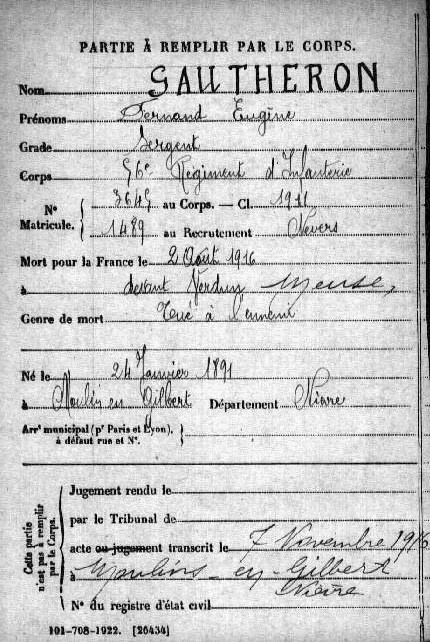 PARTIE À REMPLIR PAR LE CORPS.
Nom GAUTHERON
Prénoms Fernand Eugène
Grade Sergent
Corps 56e Régiment d'Infanterie
N° Matricule. { 3645 au Corps. — Cl. 1911
1489 au Recrutement Nevers
Mort pour la France le 2 Août 1916
à devant Verdun Meuse,
Genre de mort Tué à l'ennemi
Né le 24 Janvier 1891
à Moulin en Gilbert Département Nièvre
Arrt municipal (pr Paris et Lyon),
à défaut rue et N°.
Cette partie n'est pas à remplir par le Corps.
Jugement rendu le
par le Tribunal de
acte ou jugement transcrit le 7 Novembre 1916
à Moulins-en-Gilbert
Nièvre
N° du registre d'état civil
101-708-1922. [26434]